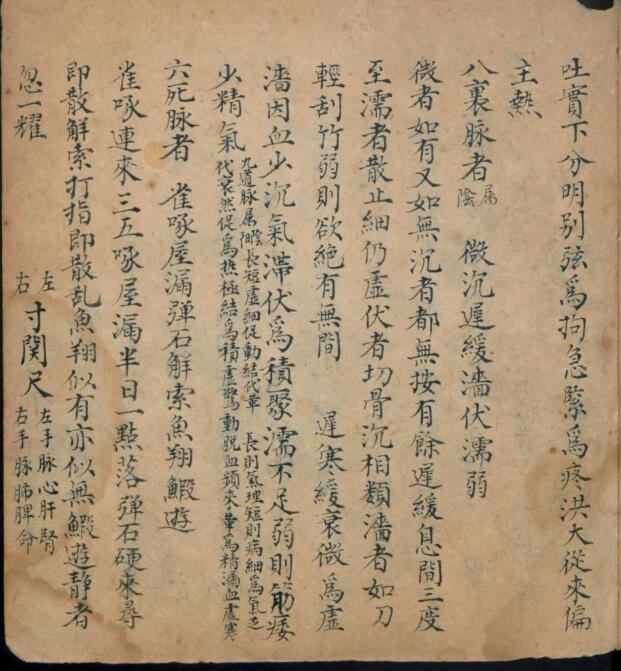 吐實下分明别弦爲拘急緊爲疼洪大從來偏
主熱
八裏脉者属陰 微沉遲緩濇伏濡弱
微者如有又如無沉者都無按有餘遲緩息間三度
至濡者散止細仍虛伏者切骨沉相類濇者如刀
輕刮竹弱則欲絶有無間 遲寒緩衰微爲虛
濇因血少沉氣滯伏爲積聚濡不足弱則筋痿
少精氣 九道脉属陰 長短虛細促動結代革 長則氣理短則病細爲氣乏
代衰然促爲热極結爲積虛驚動脱血頻來革爲精漏血虛寒
六死脉者 雀啄屋漏弹石解索魚翔鰕遊
雀啄連來三五啄屋漏半日一點落弹石硬來尋
即散解索打指即散乱魚翔似有亦似無鰕遊静者
忽一耀
左右 寸関尺 左手脉心肝腎
右手脉肺脾命